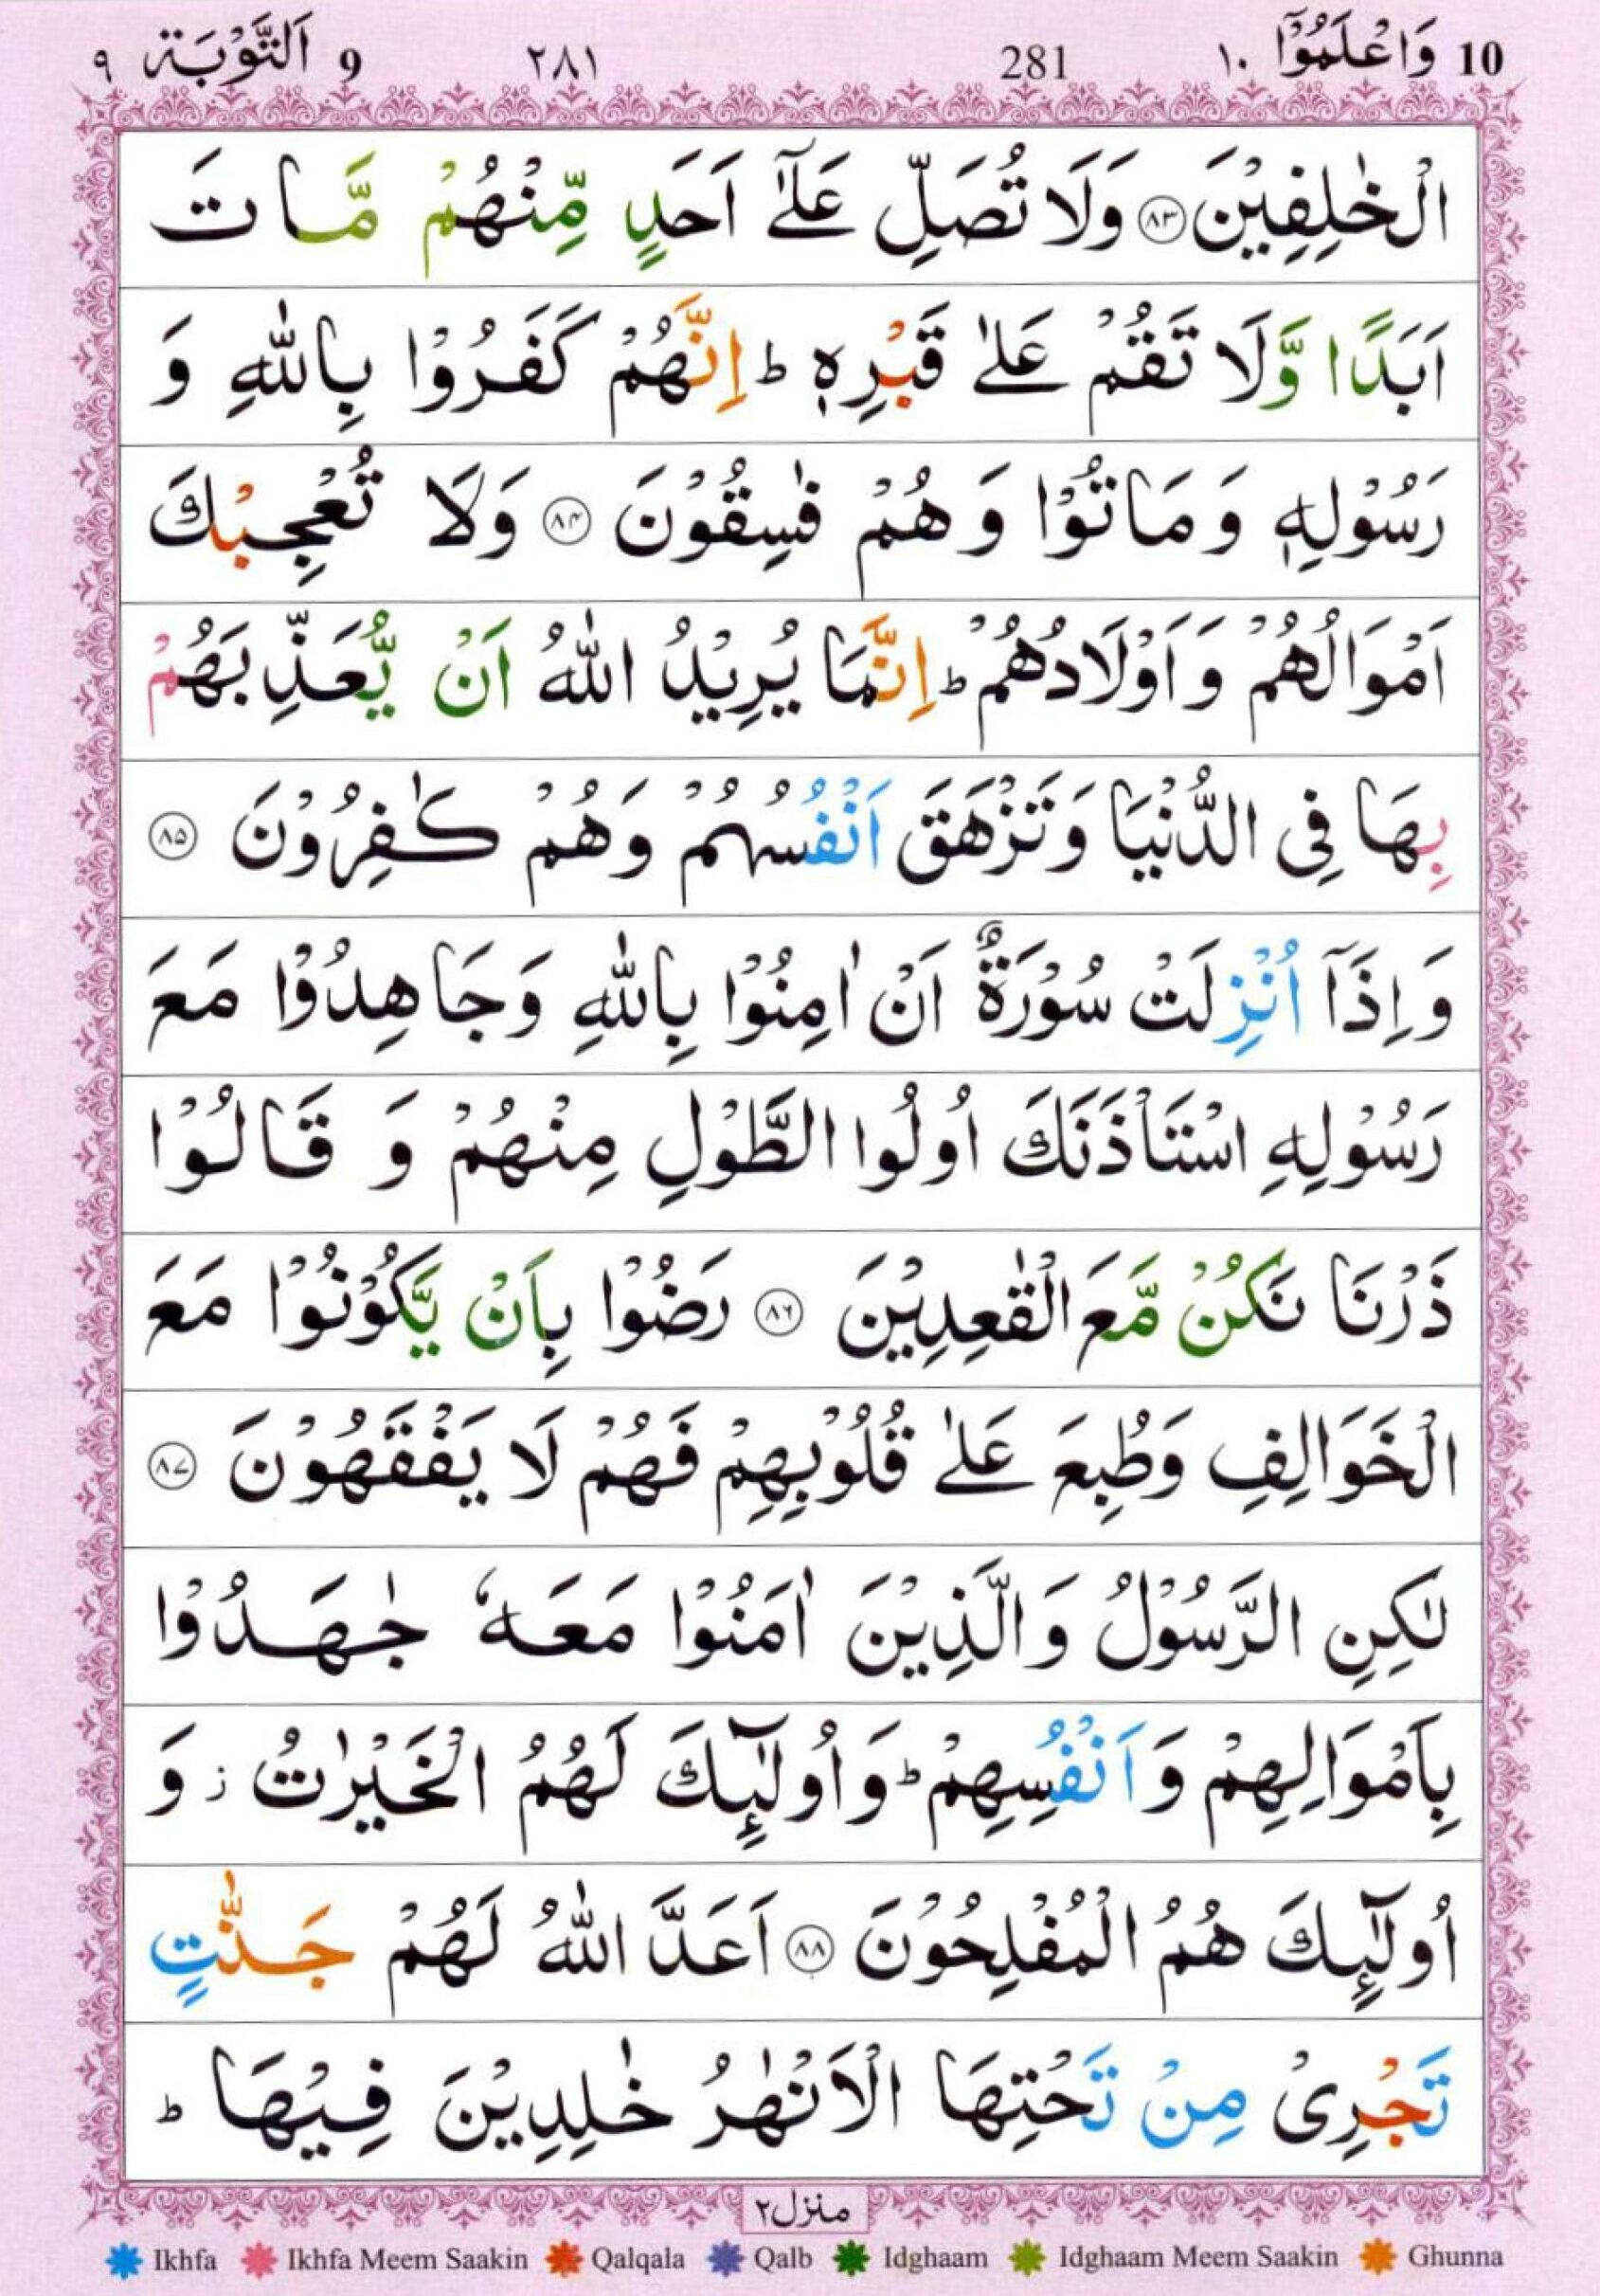 10 وَاعْلَمُوْۤا ۱۰ 281 ۲۸۱ 9 اَلتَّوْبَة ۹
الْخٰلِفِيْنَ ﴿۸۳﴾ وَلَا تُصَلِّ عَلٰۤى اَحَدٍ مِّنْهُمْ مَّاتَ
اَبَدًا وَّلَا تَقُمْ عَلٰى قَبْرِهٖ ؕ اِنَّهُمْ كَفَرُوْا بِاللّٰهِ وَ
رَسُوْلِهٖ وَمَاتُوْا وَهُمْ فٰسِقُوْنَ ﴿۸۴﴾ وَلَا تُعْجِبْكَ
اَمْوَالُهُمْ وَاَوْلَادُهُمْ ؕ اِنَّمَا يُرِيْدُ اللّٰهُ اَنْ يُّعَذِّبَهُمْ
بِهَا فِى الدُّنْيَا وَتَزْهَقَ اَنْفُسُهُمْ وَهُمْ كٰفِرُوْنَ ﴿۸۵﴾
وَاِذَاۤ اُنْزِلَتْ سُوْرَةٌ اَنْ اٰمِنُوْا بِاللّٰهِ وَجَاهِدُوْا مَعَ
رَسُوْلِهِ اسْتَاْذَنَكَ اُولُوا الطَّوْلِ مِنْهُمْ وَ قَالُوْا
ذَرْنَا نَكُنْ مَّعَ الْقٰعِدِيْنَ ﴿۸۶﴾ رَضُوْا بِاَنْ يَّكُوْنُوْا مَعَ
الْخَوَالِفِ وَطُبِعَ عَلٰى قُلُوْبِهِمْ فَهُمْ لَا يَفْقَهُوْنَ ﴿۸۷﴾
لٰكِنِ الرَّسُوْلُ وَالَّذِيْنَ اٰمَنُوْا مَعَهٗ جٰهَدُوْا
بِاَمْوَالِهِمْ وَاَنْفُسِهِمْ ؕ وَاُولٰٓئِكَ لَهُمُ الْخَيْرٰتُ ؗ وَ
اُولٰٓئِكَ هُمُ الْمُفْلِحُوْنَ ﴿۸۸﴾ اَعَدَّ اللّٰهُ لَهُمْ جَنّٰتٍ
تَجْرِىْ مِنْ تَحْتِهَا الْاَنْهٰرُ خٰلِدِيْنَ فِيْهَا ؕ
منزل۲
Ikhfa Ikhfa Meem Saakin Qalqala Qalb Idghaam Idghaam Meem Saakin Ghunna